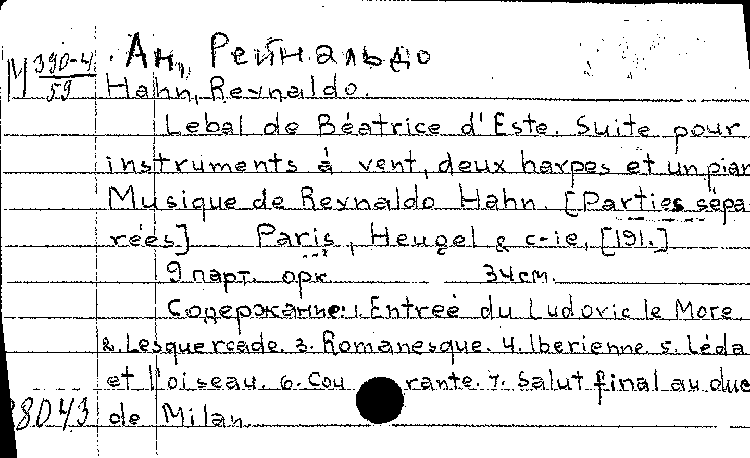 Ан, Рейнальдо
М 390-4
59
Hahn, Reynaldo.
Lebal de Béatrice d'Este. Suite pour
instruments à vent, deux harpes et un pian
Musique de Reynaldo Hahn. [Parties sépa-
rées] Paris, Heugel & c-ie, [191.]
9 парт. орк. 34 см.
Содержание: 1. Entreé du Ludovic le More
2. Lesquercade. 3. Romanesque. 4. Iberienne. 5. Léda
et l'oiseau. 6. Courante. 7. Salut final au duc
8043 de Milan